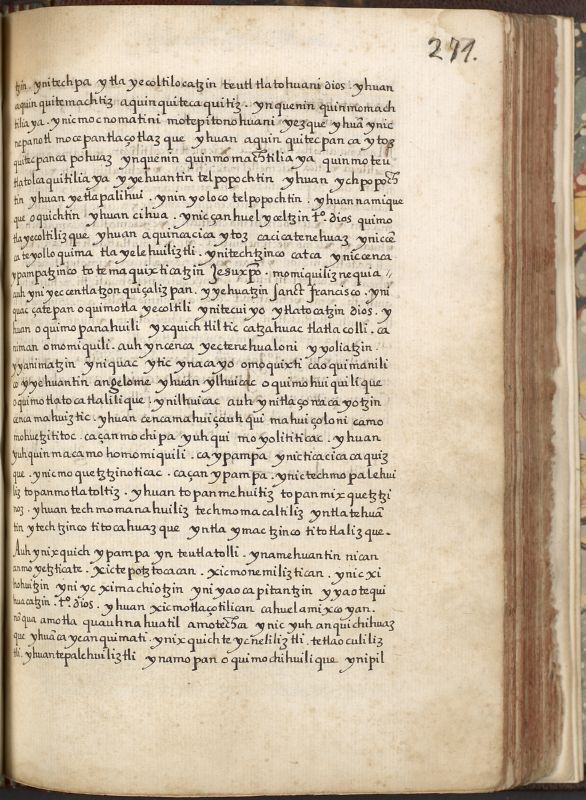 271.
tzin. ynitechpa ytla yecoltilocatzin teutl tlatohuani dios. yhuan
aquin quitemachtiz aquin quitecaquitiz. ynquenin quinmomach
tiliaya. ynicmocnomatini motepitonohuani yezque yhuā ynic
nepanotl mocepantlaçotlaz que yhuan aquin quitecpanca ytoz
quitecpanca pohuaz ynquenin quinmomachtiliaya quinmoteu
tlatolcaquitiliaya yyehuantin telpopochtin yhuan ychpopoch
tin yhuan yetlapalihui. ynin yoloco telpopochtin. yhuan namique
que oquichtin yhuan cihua. ynicçanhuel yceltzin tº. dios quimo
tlayecoltilizque yhuan aquinacica ytoz cacicatenehuaz yniccē
ca teyollo quima tlayelehuiliztli. ynitechtzinco catca yniccenca
ypampatzinco totemaquixticatzin Jesuxpō. momiquiliznequia //
auh yniyeccentlatzonquiçalizpan. yyehuatzin sanct francisco. yni
quac çatepan oquimotlayecoltili ynitecuiyo ytlatocatzin dios. y
huan oquimopanahuili yxquich tliltic catzahuac tlatlacolli. ca
niman omomiquili. auh yncenca yectenehualoni yyoliatzin.
yyanimatzin yniquac ytic ynacayo omoquixti caoquimanili
co yyehuantin angelome yhuan ylhuicac oquimohuiquilique
oquimotlatocatlalilique. ynilhuicac auh ynitlaçonacayotzin
cenca mahuiztic. yhuan cencamahuiçauhqui mahuiçoloni camo
mohuetzititoc. caçanmochipa yuhqui moyolititicac. yhuan
yuhquinmacamo homomiquili. caypampa ynicticacicacaquiz
que. ynicmoquetztzinoticac. caçan ypampa. ynictechmopalehui
liz topanmotlatoltiz. yhuan topanmehuitiz topanmixquetztzi
noz. yhuan techmomanahuiliz techmomacaltiliz yntlatehuā
tin ytechtzinco titocahuazque yntla ymactzinco titotlalizque.
Auh ynixquich ypampa yn teutlatolli. ynamehuantin nican
anmoyetzticate. xictepotztocacan. xicmonemiliztican. ynicxi
hohuitzin yniyc ximachiotzin yniyaocapitantzin yyaotequi
huacatzin. tº. dios. yhuan xicmotlaçotilican cahuelamixcoyan.
noqua amotla quauhnahuatil amotechca ynic yuh anquichihuaz
que yhuā caycanquimati. ynixquich teycneliliztli. tetlaoculiliz
tli. yhuantepalehuiliztli ynamopan oquimochihuilique ynipil